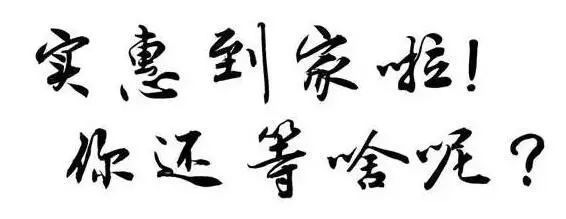 实惠到家啦!
你还等啥呢?